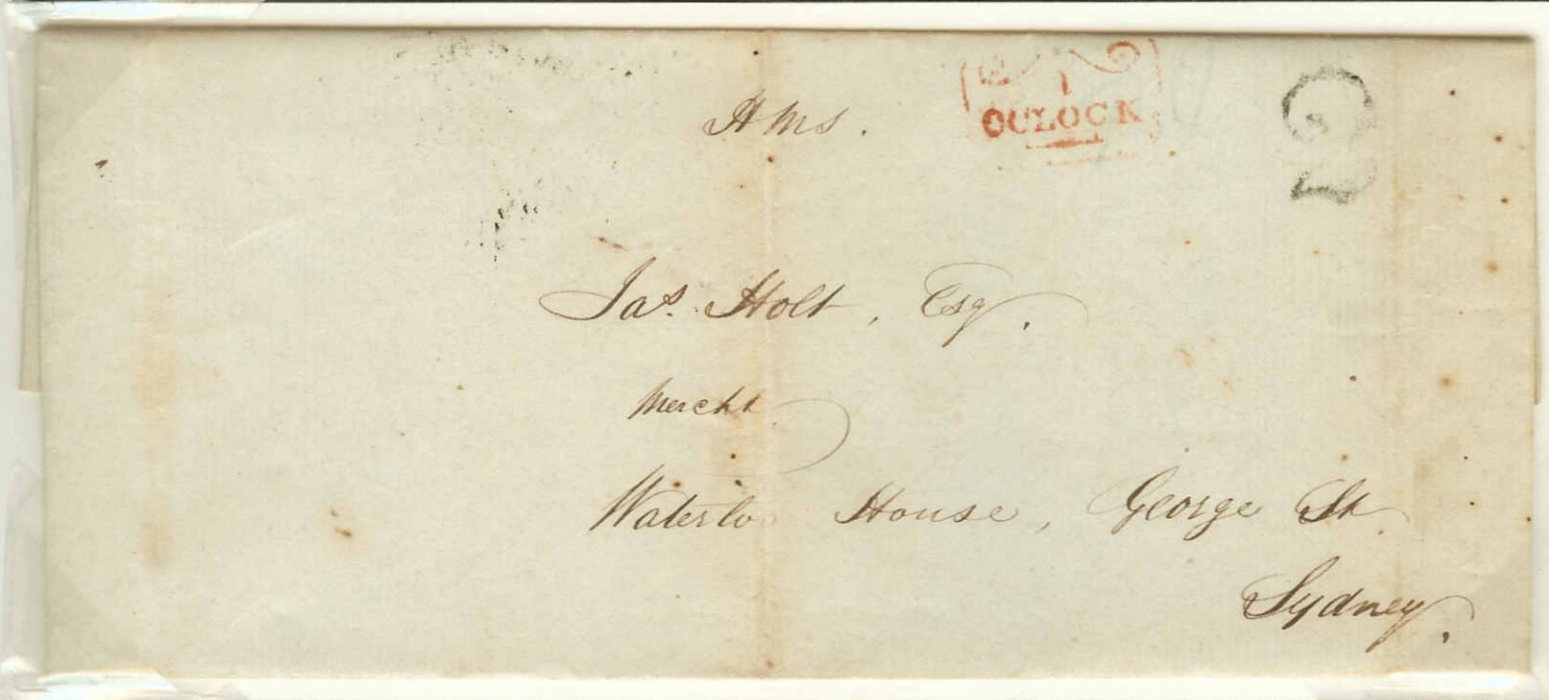 HMS.
1
OCLOCK
2
Jas. Holt, Esq.
Mercht
Waterloo House, George St.
Sydney.